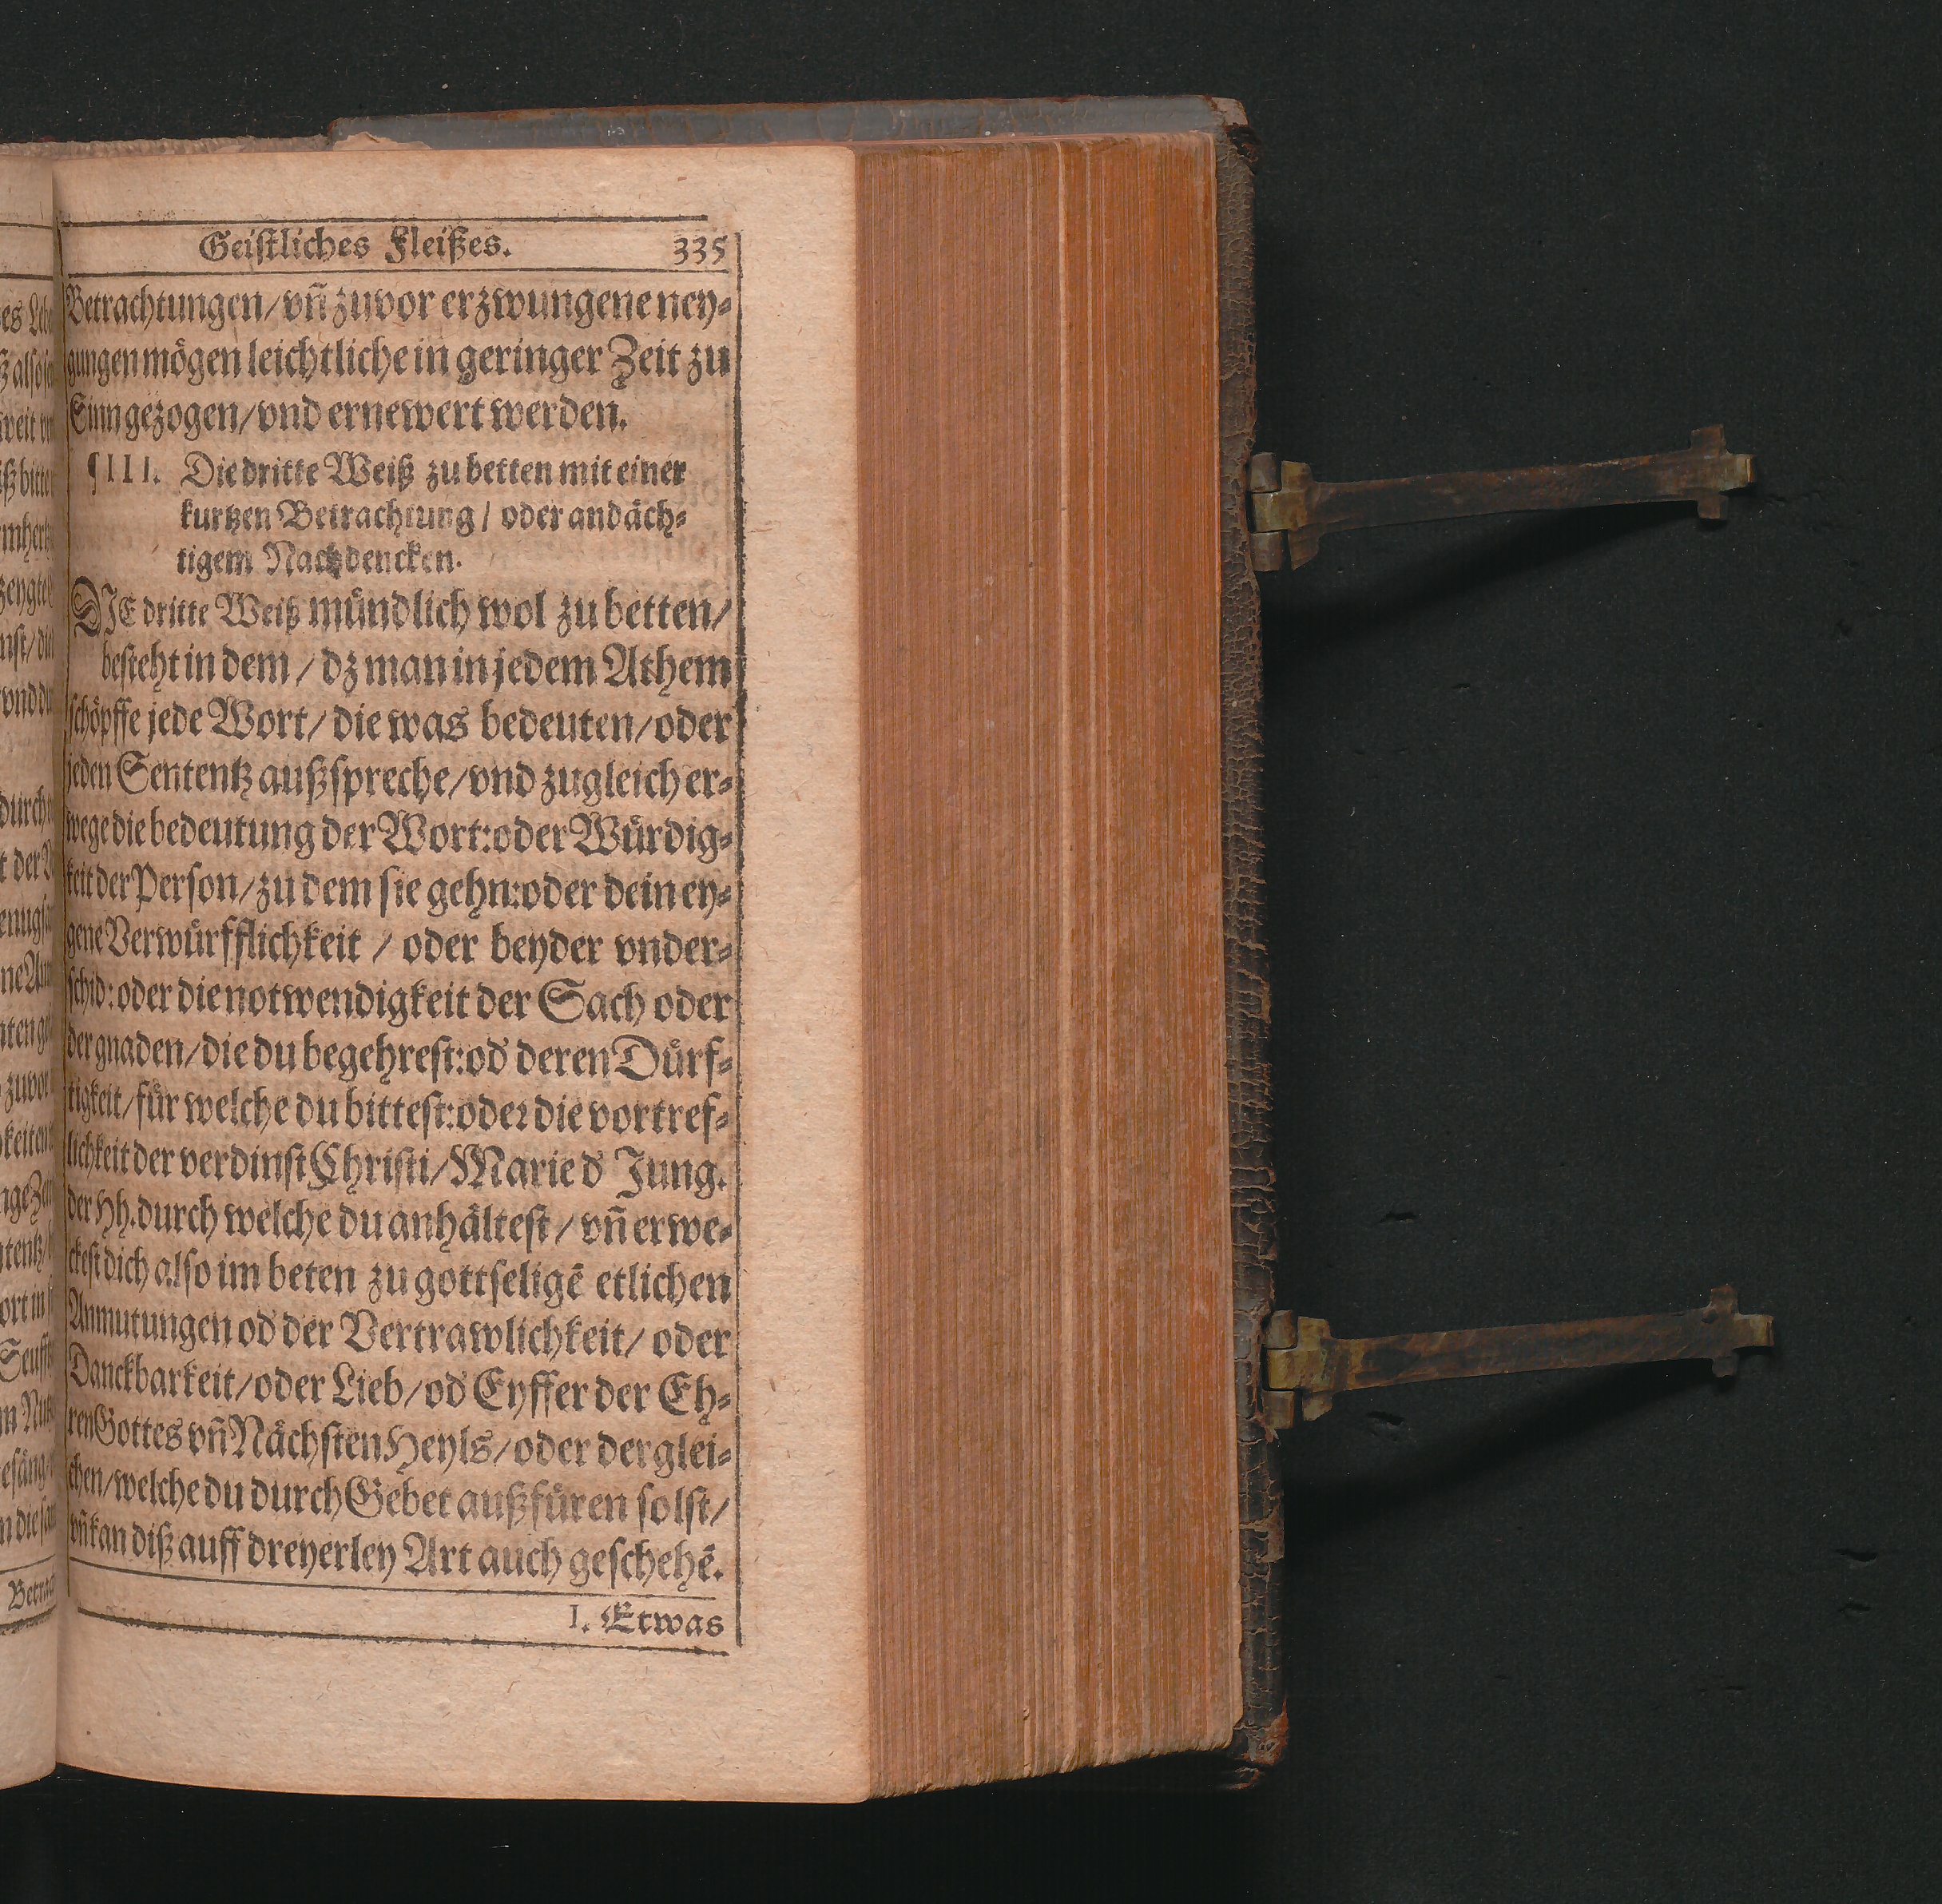 Geistliches Fleißes. 335
Betrachtungen/ vñ zuvor erzwungene ney⸗
gungen mögen leichtliche in geringer Zeit zu
Sinn gezogen/ vnd ernewert werden.
¶III. Die dritte Weiß zu betten mit einer
kurtzen Betrachtung / oder andäch⸗
tigem Nachdencken.
DIE dritte Weiß mündlich wol zu betten/
besteht in dem / dz man in jedem Athem
schöpffe jede Wort/ die was bedeuten/ oder
jeden Sententz außspreche/ vnd zugleich er⸗
wege die bedeutung der Wort: oder Würdig⸗
keit der Person/ zu dem sie gehn: oder dein ey⸗
gene Verwürfflichkeit / oder beyder vnder⸗
schid: oder die notwendigkeit der Sach oder
der gnaden/ die du begehrest: od' deren Dürf⸗
tigkeit/ für welche du bittest: oder die vortref⸗
lichkeit der verdinst Christi/ Marie d' Jung.
der Hh. durch welche du anhältest / vñ erwe⸗
ckest dich also im beten zu gottseligē etlichen
Anmutungen od' der Vertrawlichkeit/ oder
Danckbarkeit/ oder Lieb/ od' Eyffer der Eh⸗
ren Gottes vñ Nächsten Heyls/ oder derglei⸗
chen/ welche du durch Gebet außfüren solst/
vñ kan diß auff dreyerley Art auch geschehē.
I. Etwas